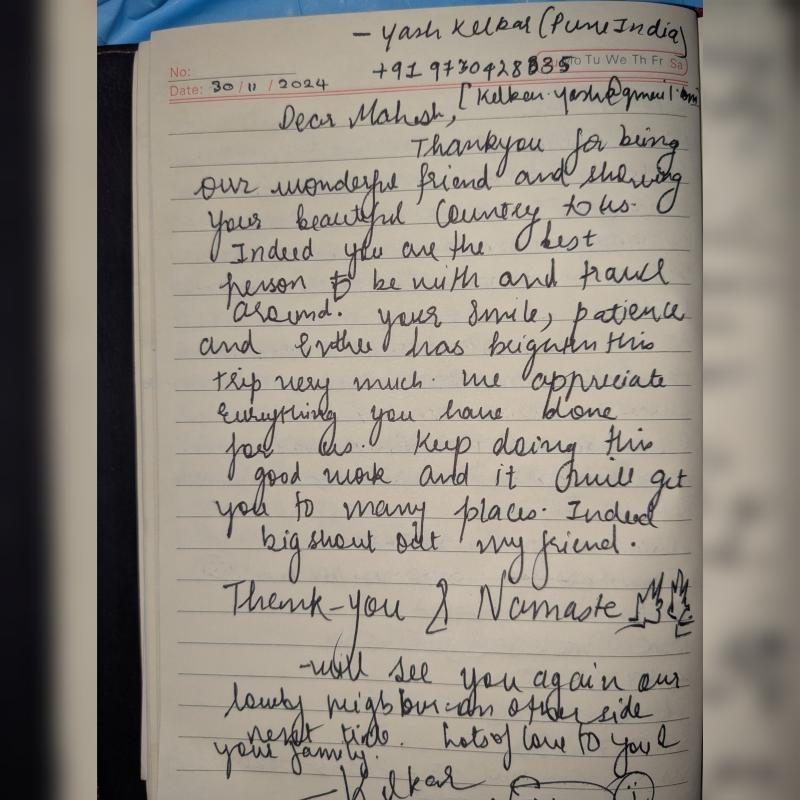 - Yash Kelkar (Pune India)
+91 9730428835
No: Mo Tu We Th Fr Sa
Date: 30/11/2024
[Kelkar.yash@gmail.com]
Dear Mahesh,
Thankyou for being
our wonderful friend and showing
your beautiful Country to us.
Indeed you are the best
person to be with and travel
around. your smile, patience
and has brighten this
trip very much. We appreciate
Everything you have done
for us. Keep doing this
good work and it will get
you to many places. Indeed
big shout out my friend.
Thank-you & Namaste
-will see you again our
lovely other side
next time. Lots of love to you &
your family.
- Kelkar